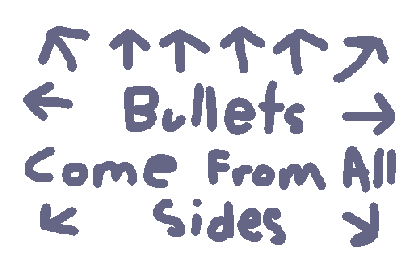 Bullets
Come From All
Sides